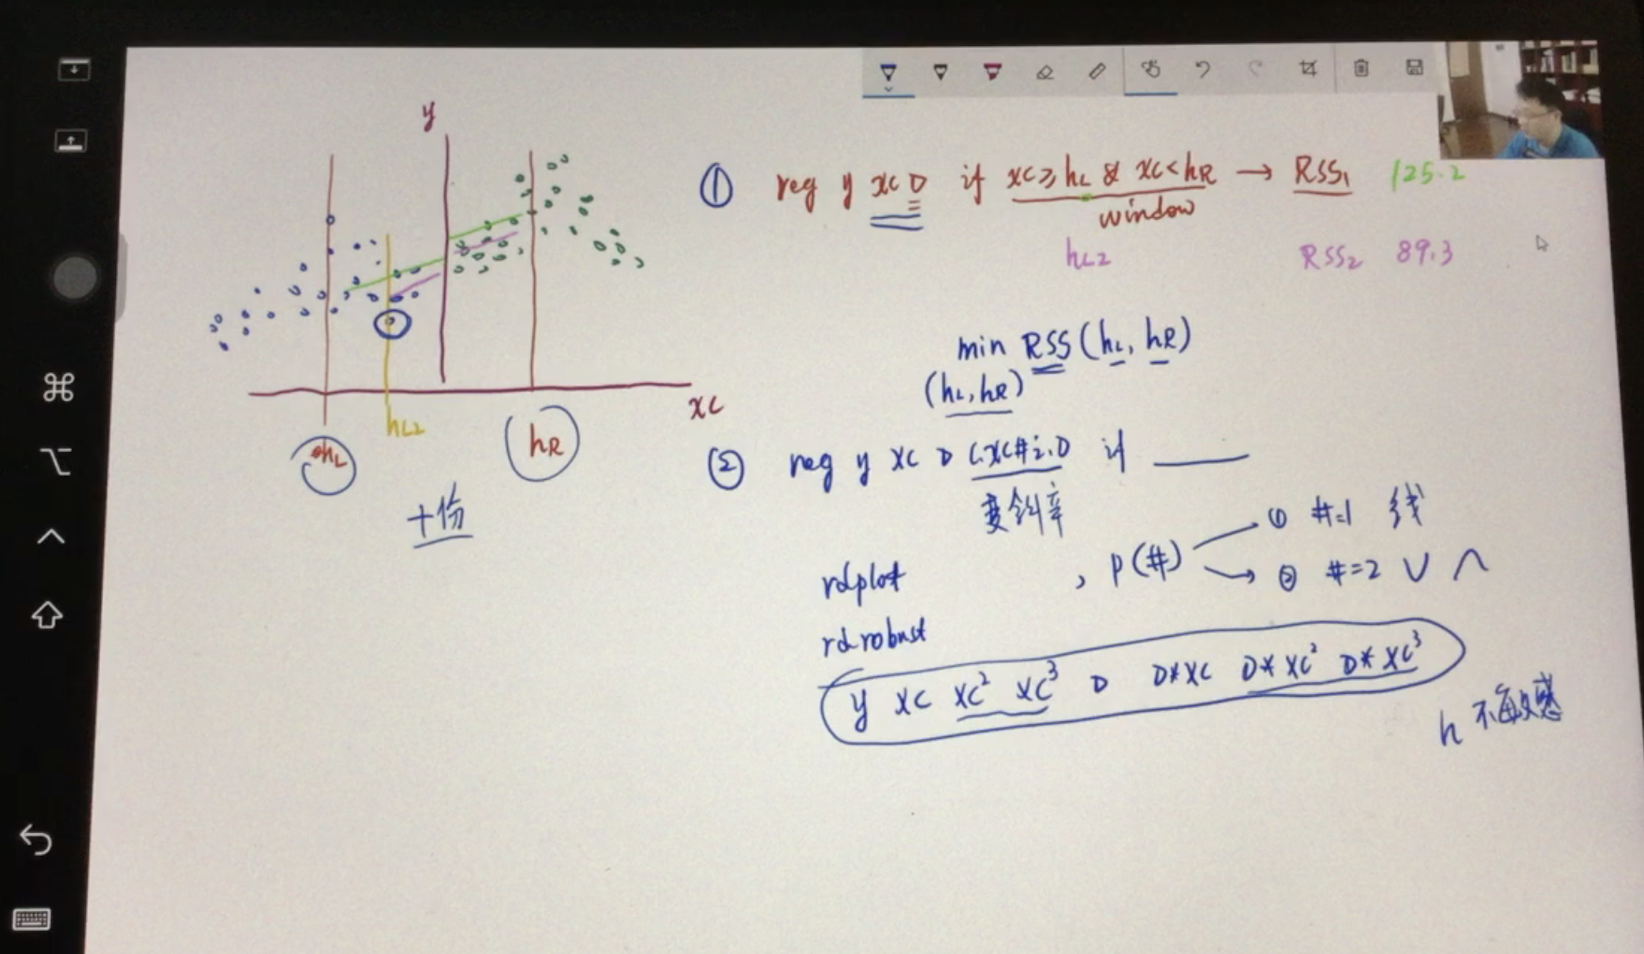 y
xc
hL
hL2
hR
十份
① reg y xc D if xc≥hL & xc<hR → RSS₁ 125.2
window
hL2 RSS₂ 89.3
min RSS(hL, hR)
(hL,hR)
② reg y xc D c.xc#i.D if ____
变斜率
rdplot , p(#)
① #=1 线
② #=2 ∨ ∧
rdrobust
y xc xc² xc³ D D*xc D*xc² D*xc³
h 不敏感